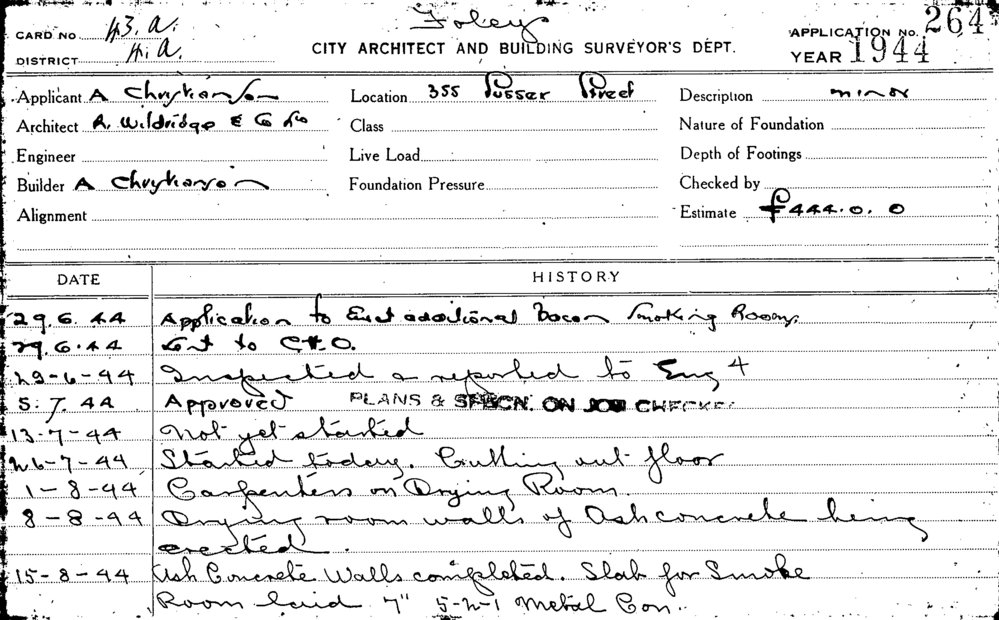 Foley
CARD NO. 43. a.
DISTRICT H.a.
CITY ARCHITECT AND BUILDING SURVEYOR'S DEPT.
APPLICATION NO. 264
YEAR 1944
Applicant A Chrystianson
Location 355 Sussex Street
Description minor
Architect R. Wildridge & Co Ltd
Class
Nature of Foundation
Engineer
Live Load
Depth of Footings
Builder A Chrystianson
Foundation Pressure
Checked by
Alignment
Estimate £444.0.0
DATE HISTORY
29.6.44 Application to Erect additional Bacon Smoking Rooms.
29.6.44 Sent to C.H.O.
29-6-44 Inspected & reported to Eng 4
5.7.44 Approved PLANS & SPECN. ON JOB CHECKED
13-7-44 Not yet started
26-7-44 Started today. Cutting out floor
1-8-44 Carpenters on Drying Room.
8-8-44 Drying room walls of Ash concrete being
erected.
15-8-44 Ash Concrete Walls completed. Slab for Smoke
Room laid 7" 5-2-1 Metal Con.